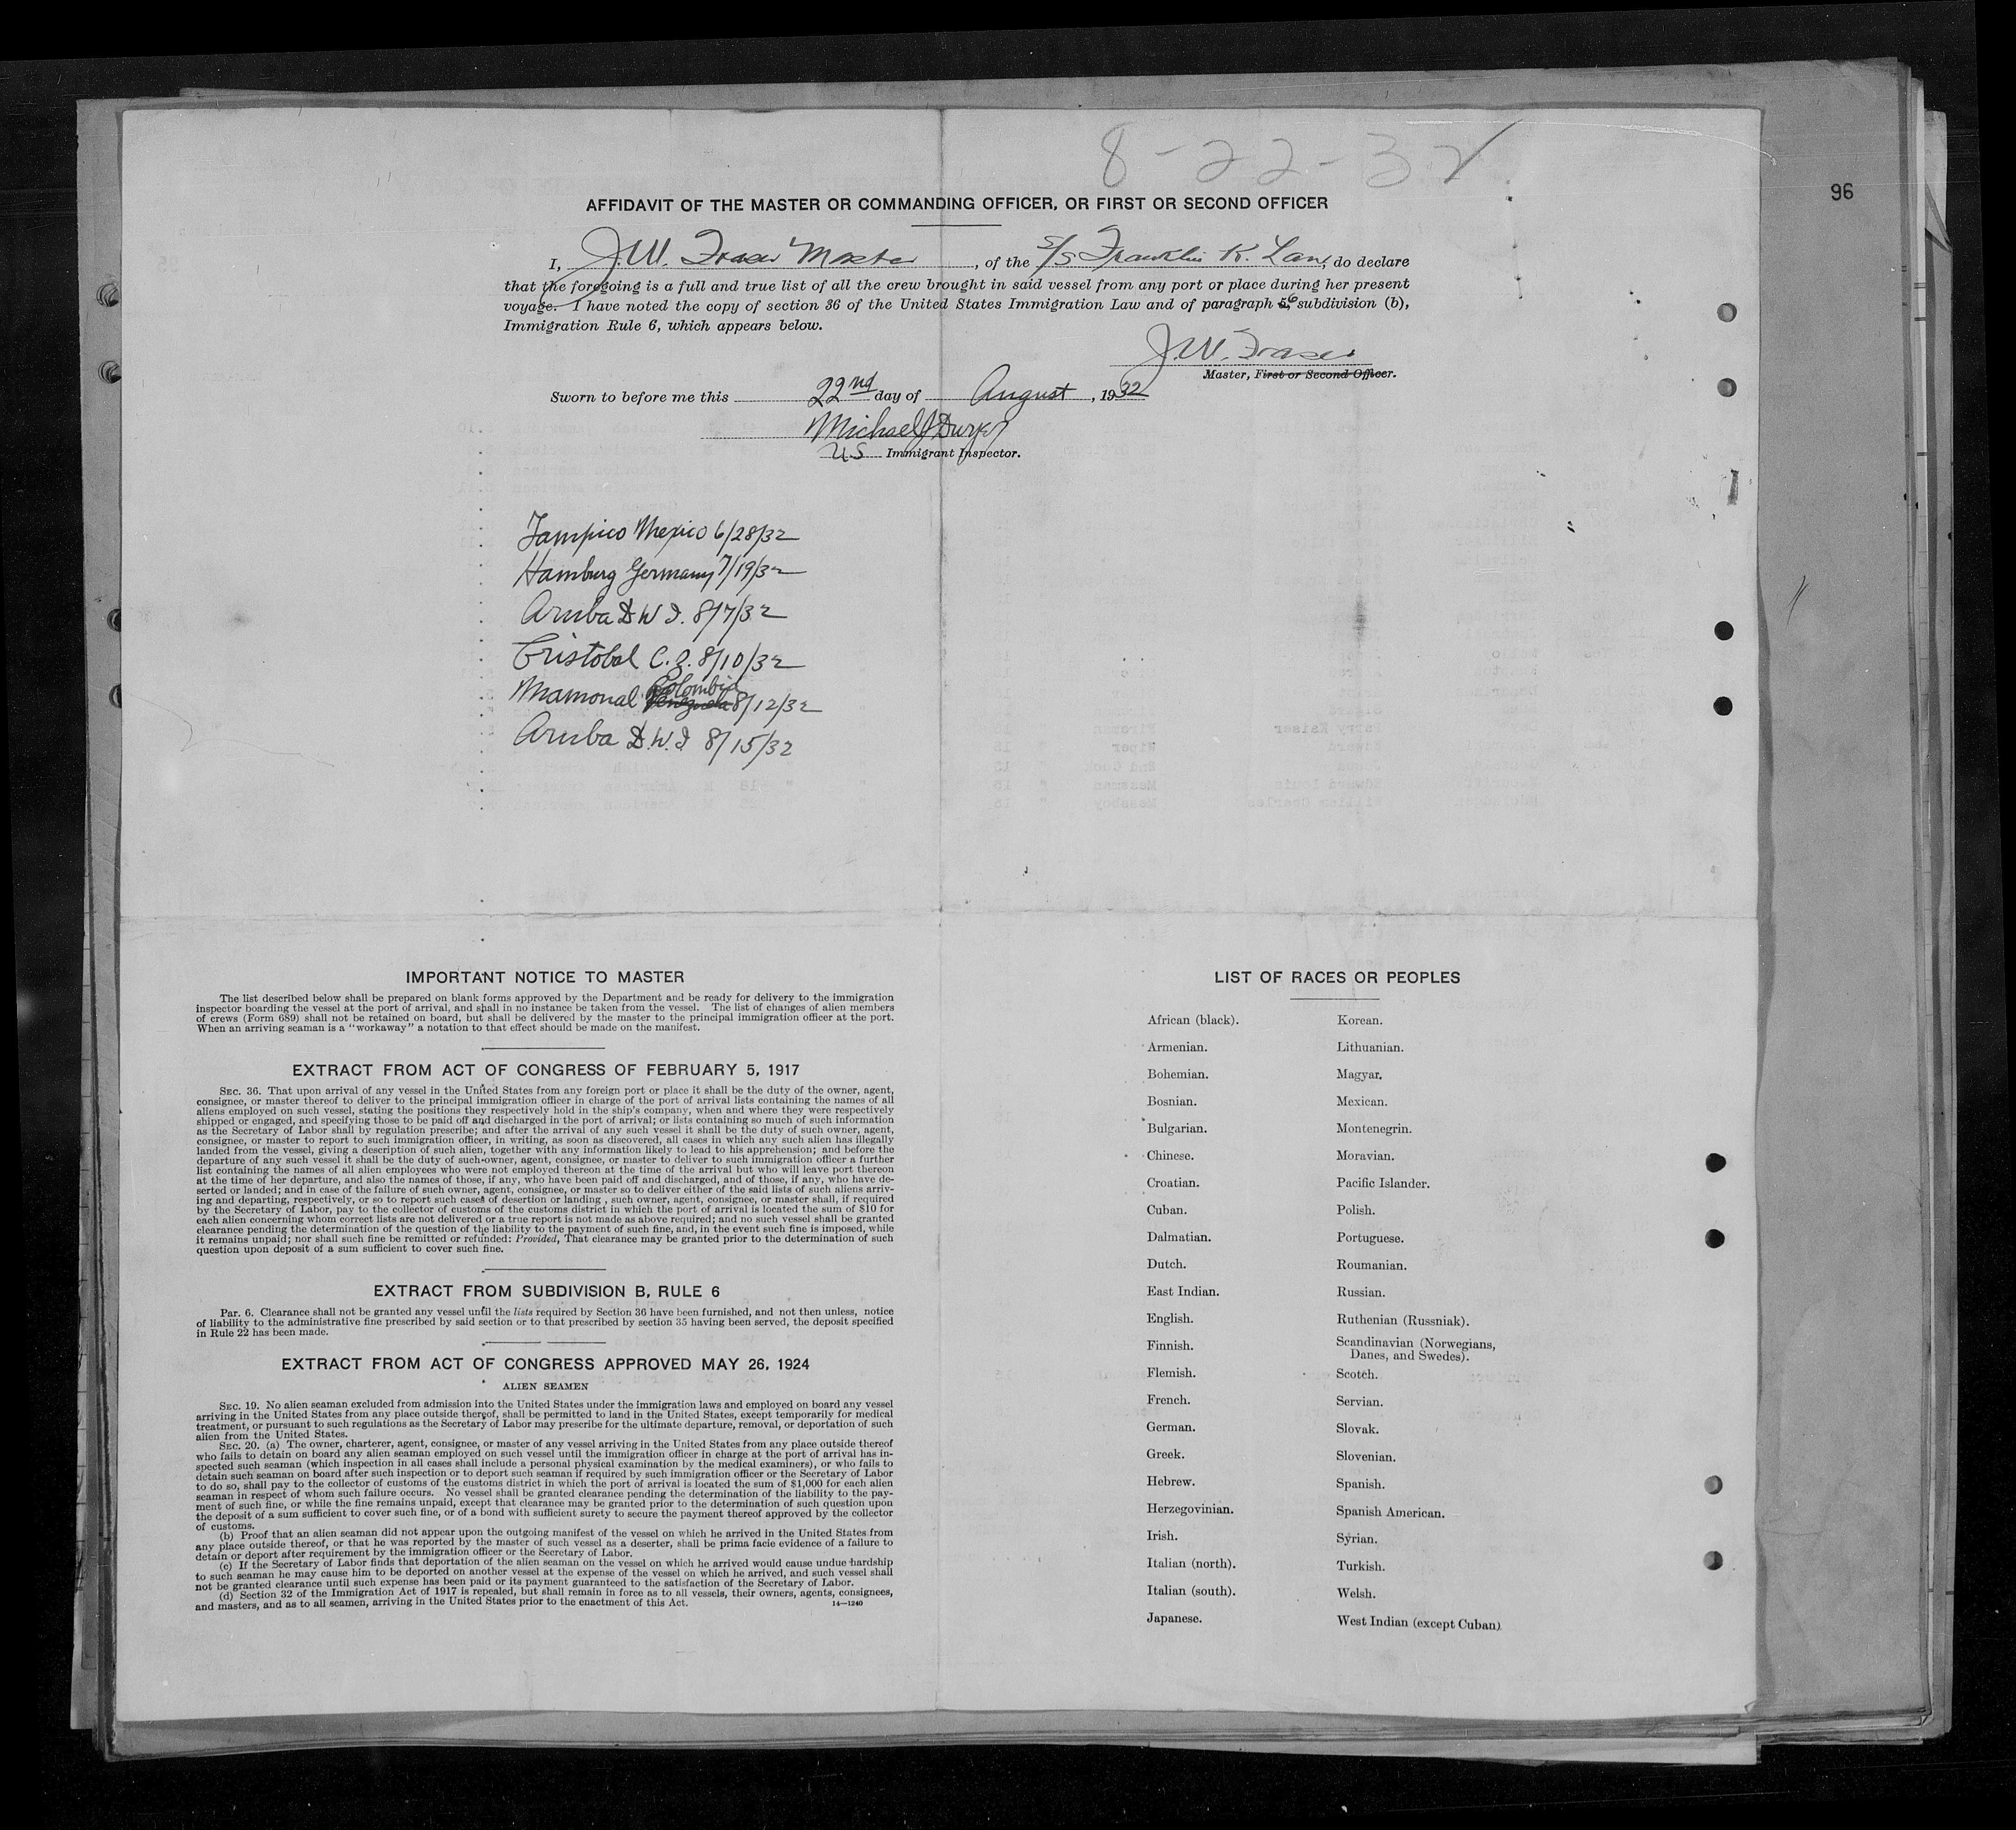 8-22-32
96
AFFIDAVIT OF THE MASTER OR COMMANDING OFFICER, OR FIRST OR SECOND OFFICER
I, J.W. Fraser Master, of the S/S Franklin K. Lane, do declare
that the foregoing is a full and true list of all the crew brought in said vessel from any port or place during her present
voyage. I have noted the copy of section 36 of the United States Immigration Law and of paragraph 5, 6 subdivision (b),
Immigration Rule 6, which appears below.
J.W. Fraser
Master, First or Second Officer.
Sworn to before me this 22nd day of August, 1932
Michael J
US Immigrant Inspector.
Tampico Mexico 6/28/32
Hamburg Germany 7/19/32
Aruba D W I. 8/7/32
Cristobal C.Z. 8/10/32
Mamonal Venezuela Colombia 8/12/32
Aruba D.W.I 8/15/32
IMPORTANT NOTICE TO MASTER
The list described below shall be prepared on blank forms approved by the Department and be ready for delivery to the immigration
inspector boarding the vessel at the port of arrival, and shall in no instance be taken from the vessel. The list of changes of alien members
of crews (Form 689) shall not be retained on board, but shall be delivered by the master to the principal immigration officer at the port.
When an arriving seaman is a "workaway" a notation to that effect should be made on the manifest.
EXTRACT FROM ACT OF CONGRESS OF FEBRUARY 5, 1917
SEC. 36. That upon arrival of any vessel in the United States from any foreign port or place it shall be the duty of the owner, agent,
consignee, or master thereof to deliver to the principal immigration officer in charge of the port of arrival lists containing the names of all
aliens employed on such vessel, stating the positions they respectively hold in the ship's company, when and where they were respectively
shipped or engaged, and specifying those to be paid off and discharged in the port of arrival; or lists containing so much of such information
as the Secretary of Labor shall by regulation prescribe; and after the arrival of any such vessel it shall be the duty of such owner, agent,
consignee, or master to report to such immigration officer, in writing, as soon as discovered, all cases in which any such alien has illegally
landed from the vessel, giving a description of such alien, together with any information likely to lead to his apprehension; and before the
departure of any such vessel it shall be the duty of such owner, agent, consignee, or master to deliver to such immigration officer a further
list containing the names of all alien employees who were not employed thereon at the time of the arrival but who will leave port thereon
at the time of her departure, and also the names of those, if any, who have been paid off and discharged, and of those, if any, who have de-
serted or landed; and in case of the failure of such owner, agent, consignee, or master so to deliver either of the said lists of such aliens arriv-
ing and departing, respectively, or so to report such cases of desertion or landing, such owner, agent, consignee, or master shall, if required
by the Secretary of Labor, pay to the collector of customs of the customs district in which the port of arrival is located the sum of $10 for
each alien concerning whom correct lists are not delivered or a true report is not made as above required; and no such vessel shall be granted
clearance pending the determination of the question of the liability to the payment of such fine, and, in the event such fine is imposed, while
it remains unpaid; nor shall such fine be remitted or refunded: Provided, That clearance may be granted prior to the determination of such
question upon deposit of a sum sufficient to cover such fine.
EXTRACT FROM SUBDIVISION B, RULE 6
Par. 6. Clearance shall not be granted any vessel until the lists required by Section 36 have been furnished, and not then unless, notice
of liability to the administrative fine prescribed by said section or to that prescribed by section 35 having been served, the deposit specified
in Rule 22 has been made.
EXTRACT FROM ACT OF CONGRESS APPROVED MAY 26, 1924
ALIEN SEAMEN
SEC. 19. No alien seaman excluded from admission into the United States under the immigration laws and employed on board any vessel
arriving in the United States from any place outside thereof, shall be permitted to land in the United States, except temporarily for medical
treatment, or pursuant to such regulations as the Secretary of Labor may prescribe for the ultimate departure, removal, or deportation of such
alien from the United States.
SEC. 20. (a) The owner, charterer, agent, consignee, or master of any vessel arriving in the United States from any place outside thereof
who fails to detain on board any alien seaman employed on such vessel until the immigration officer in charge at the port of arrival has in-
spected such seaman (which inspection in all cases shall include a personal physical examination by the medical examiners), or who fails to
detain such seaman on board after such inspection or to deport such seaman if required by such immigration officer or the Secretary of Labor
to do so, shall pay to the collector of customs of the customs district in which the port of arrival is located the sum of $1,000 for each alien
seaman in respect of whom such failure occurs. No vessel shall be granted clearance pending the determination of the liability to the pay-
ment of such fine, or while the fine remains unpaid, except that clearance may be granted prior to the determination of such question upon
the deposit of a sum sufficient to cover such fine, or of a bond with sufficient surety to secure the payment thereof approved by the collector
of customs.
(b) Proof that an alien seaman did not appear upon the outgoing manifest of the vessel on which he arrived in the United States from
any place outside thereof, or that he was reported by the master of such vessel as a deserter, shall be prima facie evidence of a failure to
detain or deport after requirement by the immigration officer or the Secretary of Labor.
(c) If the Secretary of Labor finds that deportation of the alien seaman on the vessel on which he arrived would cause undue hardship
to such seaman he may cause him to be deported on another vessel at the expense of the vessel on which he arrived, and such vessel shall
not be granted clearance until such expense has been paid or its payment guaranteed to the satisfaction of the Secretary of Labor.
(d) Section 32 of the Immigration Act of 1917 is repealed, but shall remain in force as to all vessels, their owners, agents, consignees,
and masters, and as to all seamen, arriving in the United States prior to the enactment of this Act.
14—1240
LIST OF RACES OR PEOPLES
African (black).
Armenian.
Bohemian.
Bosnian.
Bulgarian.
Chinese.
Croatian.
Cuban.
Dalmatian.
Dutch.
East Indian.
English.
Finnish.
Flemish.
French.
German.
Greek.
Hebrew.
Herzegovinian.
Irish.
Italian (north).
Italian (south).
Japanese.
Korean.
Lithuanian.
Magyar.
Mexican.
Montenegrin.
Moravian.
Pacific Islander.
Polish.
Portuguese.
Roumanian.
Russian.
Ruthenian (Russniak).
Scandinavian (Norwegians,
Danes, and Swedes).
Scotch.
Servian.
Slovak.
Slovenian.
Spanish.
Spanish American.
Syrian.
Turkish.
Welsh.
West Indian (except Cuban)